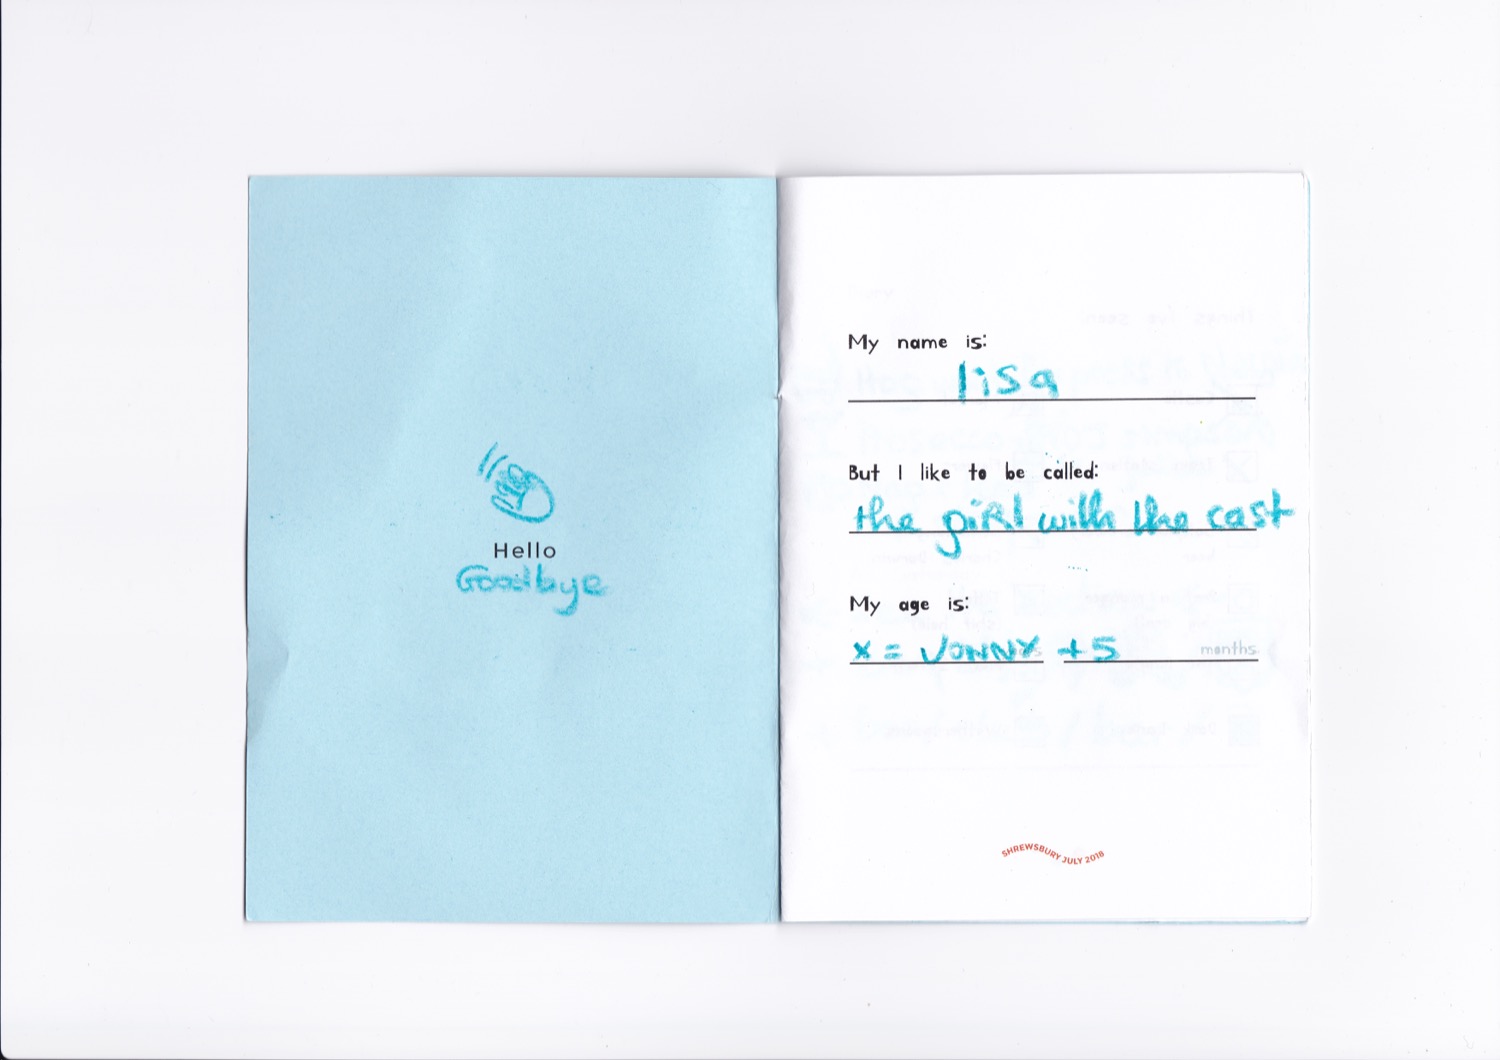 Hello
Goodbye
My name is:
lisa
But I like to be called:
the giRl with the cast
My age is:
x = JONNY +5 months
SHREWSBURY JULY 2018